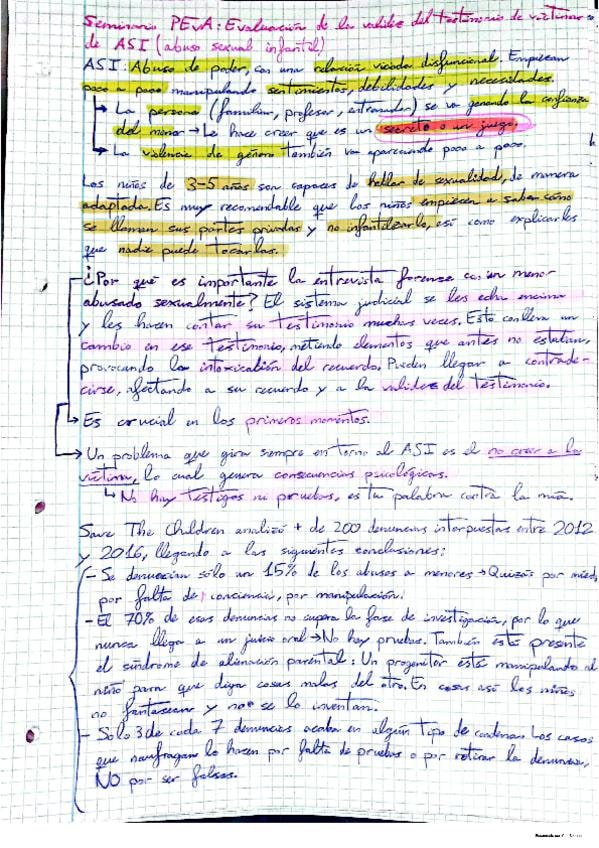 Seminario PEVA: Evaluación de la validez del testimonio de víctimas
de ASI (abuso sexual infantil)
ASI: Abuso de poder, con una relación viciada disfuncional. Empiezan
poco a poco manipulando sentimientos, debilidades y necesidades.
↳ La persona (familiar, profesor, extraño) se va ganando la confianza
del menor → Le hace creer que es un secreto o un juego.
↳ La violencia de género también va apareciendo poco a poco.
Los niños de 3-5 años son capaces de hablar de sexualidad, de manera
adaptada. Es muy recomendable que los niños empiecen a saber cómo
se llaman sus partes privadas y no infantilizarlo, así como explicarles
que nadie puede tocarlas.
¿Por qué es importante la entrevista forense con un menor
abusado sexualmente? El sistema judicial se les echa encima
y les hacen contar su testimonio muchas veces. Esto conlleva un
cambio en ese testimonio, metiendo elementos que antes no estaban,
provocando la intoxicación del recuerdo. Pueden llegar a contrade-
cirse, afectando a su recuerdo y a la validez del testimonio.
↳ Es crucial en los primeros momentos.
→ Un problema que gira siempre en torno al ASI es el no creer a la
víctima, lo cual genera consecuencias psicológicas.
↳ No hay testigos ni pruebas, es tu palabra contra la mía.
Save The Children analizó + de 200 denuncias interpuestas entre 2012
y 2016, llegando a las siguientes conclusiones:
- Se denuncian sólo un 15% de los abusos a menores → Quizás por miedo,
por falta de conciencia, por manipulación.
- El 70% de esas denuncias no supera la fase de investigación, por lo que
nunca llega a un juicio oral → No hay pruebas. También está presente
el síndrome de alienación parental: Un progenitor está manipulando al
niño para que diga cosas malas del otro. En casos así los niños
no fantasean y no se lo inventan.
- Sólo 3 de cada 7 denuncias acaba en algún tipo de condena. Los casos
que naufragan lo hacen por falta de pruebas o por retirar la denuncia,
NO por ser falsas.